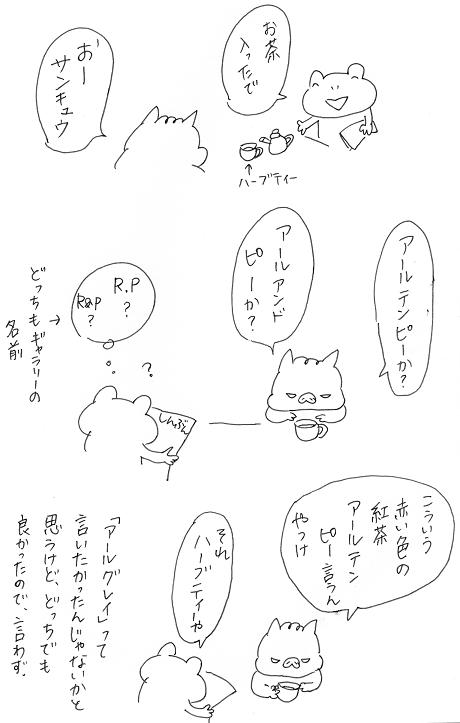 お茶
入ったで
おー
サンキュウ
↑
ハーブティー
アールテンピーか?
アールアンド
ピーか?
R.P
?
R&P
?
?
どっちもギャラリーの
名前
しんぶん
こういう
赤い色の
紅茶
アールテン
ピー言うん
やっけ
それ
ハーブティーや
「アールグレイ」って
言いたかったんじゃないかと
思うけど、どっちでも
良かったので、言わず.